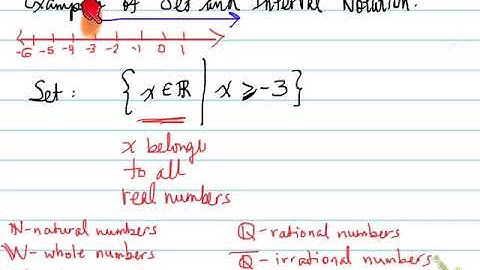 Examples of Sets and Interval Notation.
-6 -5 -4 -3 -2 -1 0 1
Set : { x ∈ ℝ | x ≥ -3 }
x belongs
to all
real numbers
ℕ-natural numbers
W- whole numbers
ℚ - rational numbers
Q̅ - irrational numbers